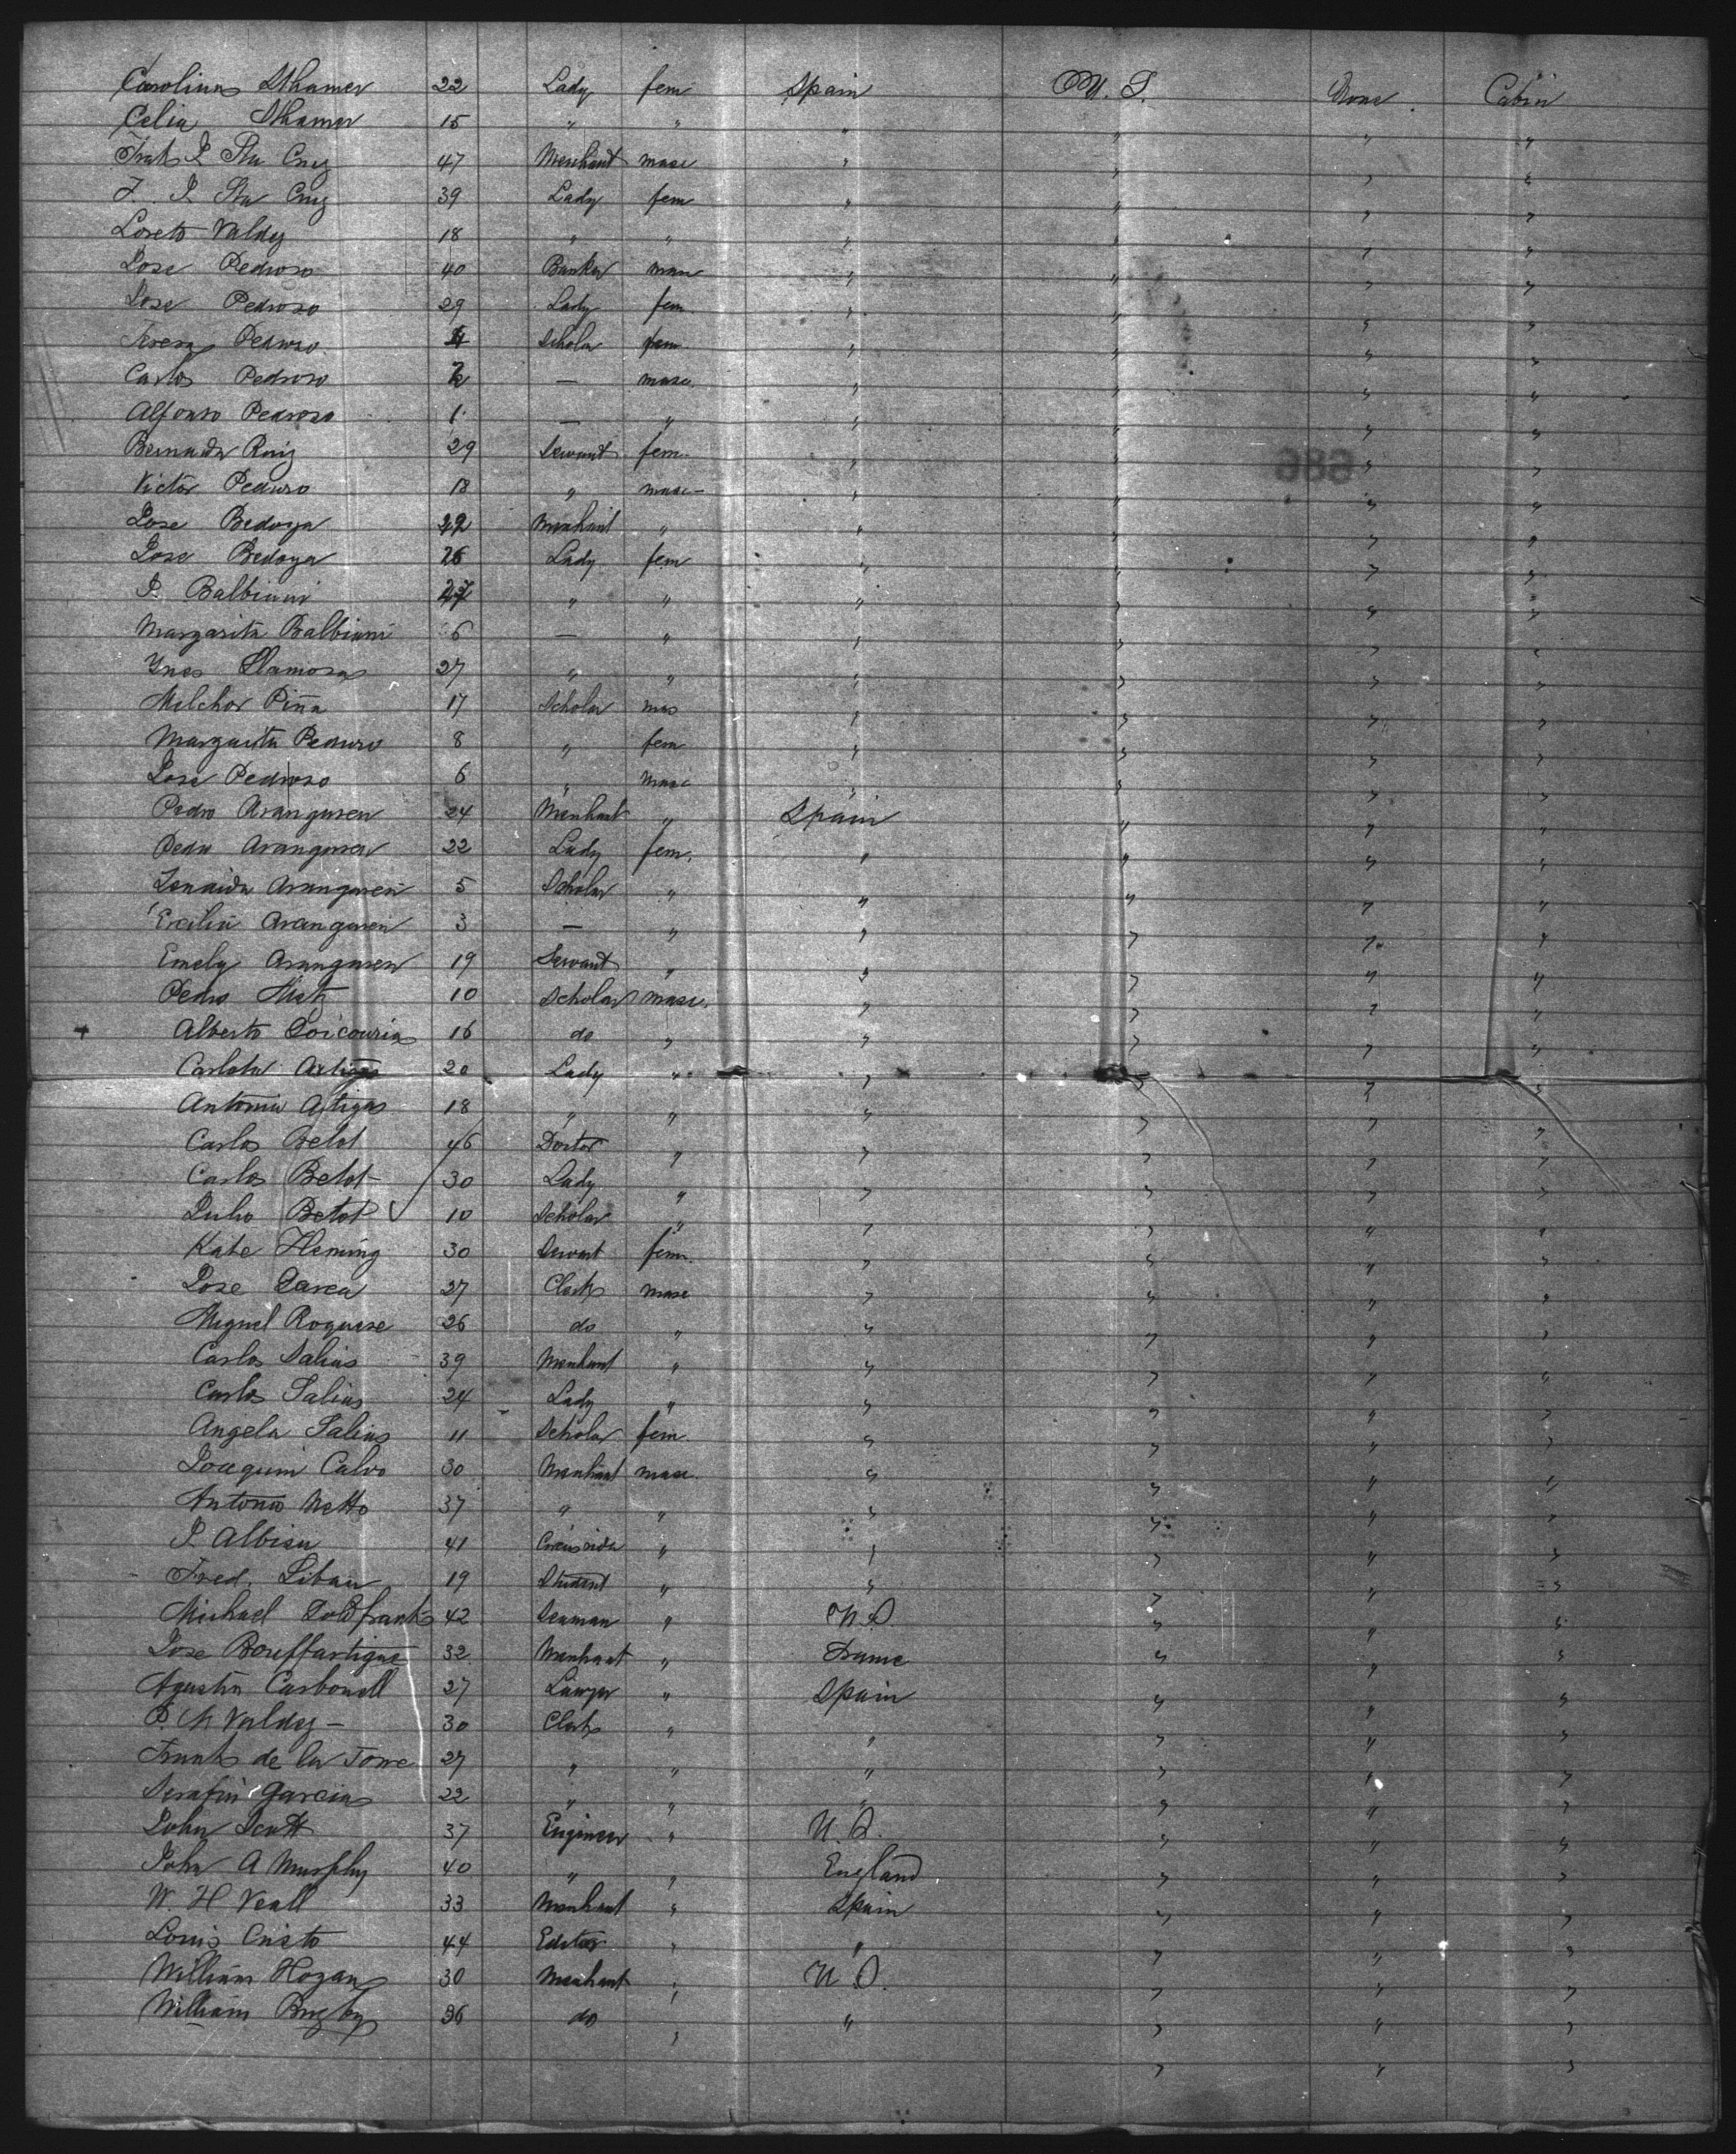 Carolina Sthamer 22 Lady fem Spain U. S. None Cabin
Celia Sthamer 15 " " " " " "
Frank I Sta Cruz 47 Merchant masc " " " "
F. I. Sta Cruz 39 Lady fem " " " "
Loreto Valdez 18 " " " " " "
Jose Pedroso 40 Banker masc " " " "
Jose Pedroso 29 Lady fem " " " "
Teresa Pedroso Scholar fem " " " "
Carlos Pedroso 2 — masc " " " "
Alfonso Pedroso 1 — " " " " "
Bernarda Ruiz 29 Servant fem. " " " "
Victor Pedroso 18 " masc " " " "
Jose Bedoya Merchant " " " " "
Jose Bedoya 26 Lady fem " " " "
P. Balbiani " " " " " "
Margarita Balbiani 6 — " " " " "
Ynes Llamosa 27 " " " " " "
Melchor Piña 17 Scholar mas " " " "
Margarita Pedroso 8 " fem " " " "
Jose Pedroso 6 " masc " " " "
Pedro Aranguren 24 Merchant " Spain " " "
Pedro Aranguren 22 Lady fem. " " " "
Zenaida Aranguren 5 Scholar " " " " "
Ercilia Aranguren 3 — " " " " "
Emely Aranguren 19 Servant " " " " "
Pedro 10 Scholar masc. " " " "
Alberto Goicouria 16 do " " " " "
Carlota Artigas 20 Lady " " " " "
Antonia Artigas 18 " " " " " "
Carlos Betot 46 Doctor " " " " "
Carlos Betot 30 Lady " " " " "
Julio Betot 10 Scholar " " " " "
Kate Fleming 30 Servant fem. " " " "
Jose Garca 27 Clerk masc " " " "
Miguel Roquese 26 do " " " " "
Carlos Salias 39 Merchant " " " " "
Carlos Salias 24 Lady " " " " "
Angela Salias 11 Scholar fem. " " " "
Joaquin Calvo 30 Merchant masc. " " " "
Antonio Netto 37 " " " " " "
P. Albisu 41 " " " " "
Fred. Liban 19 Student " " " " "
Michael Goldfrank 42 Seaman " U. S. " " "
Jose Bouffartigue 32 Merchant " France " " "
Agustin Carbonell 27 Lawyer " Spain " " "
P. N Valdez — 30 Clerk " " " " "
Frank de la Torre 27 " " " " " "
Serafin Garcia 22 " " " " " "
John Scott 37 Engineer " U. S. " " "
John A Murphy 40 " " England " " "
W. H Neall 33 Merchant " Spain " " "
Louis Cristo 44 Editor " " " " "
William Hogan 30 Merchant " U S. " " "
William Bugby 36 do " " " " "
" " "
686